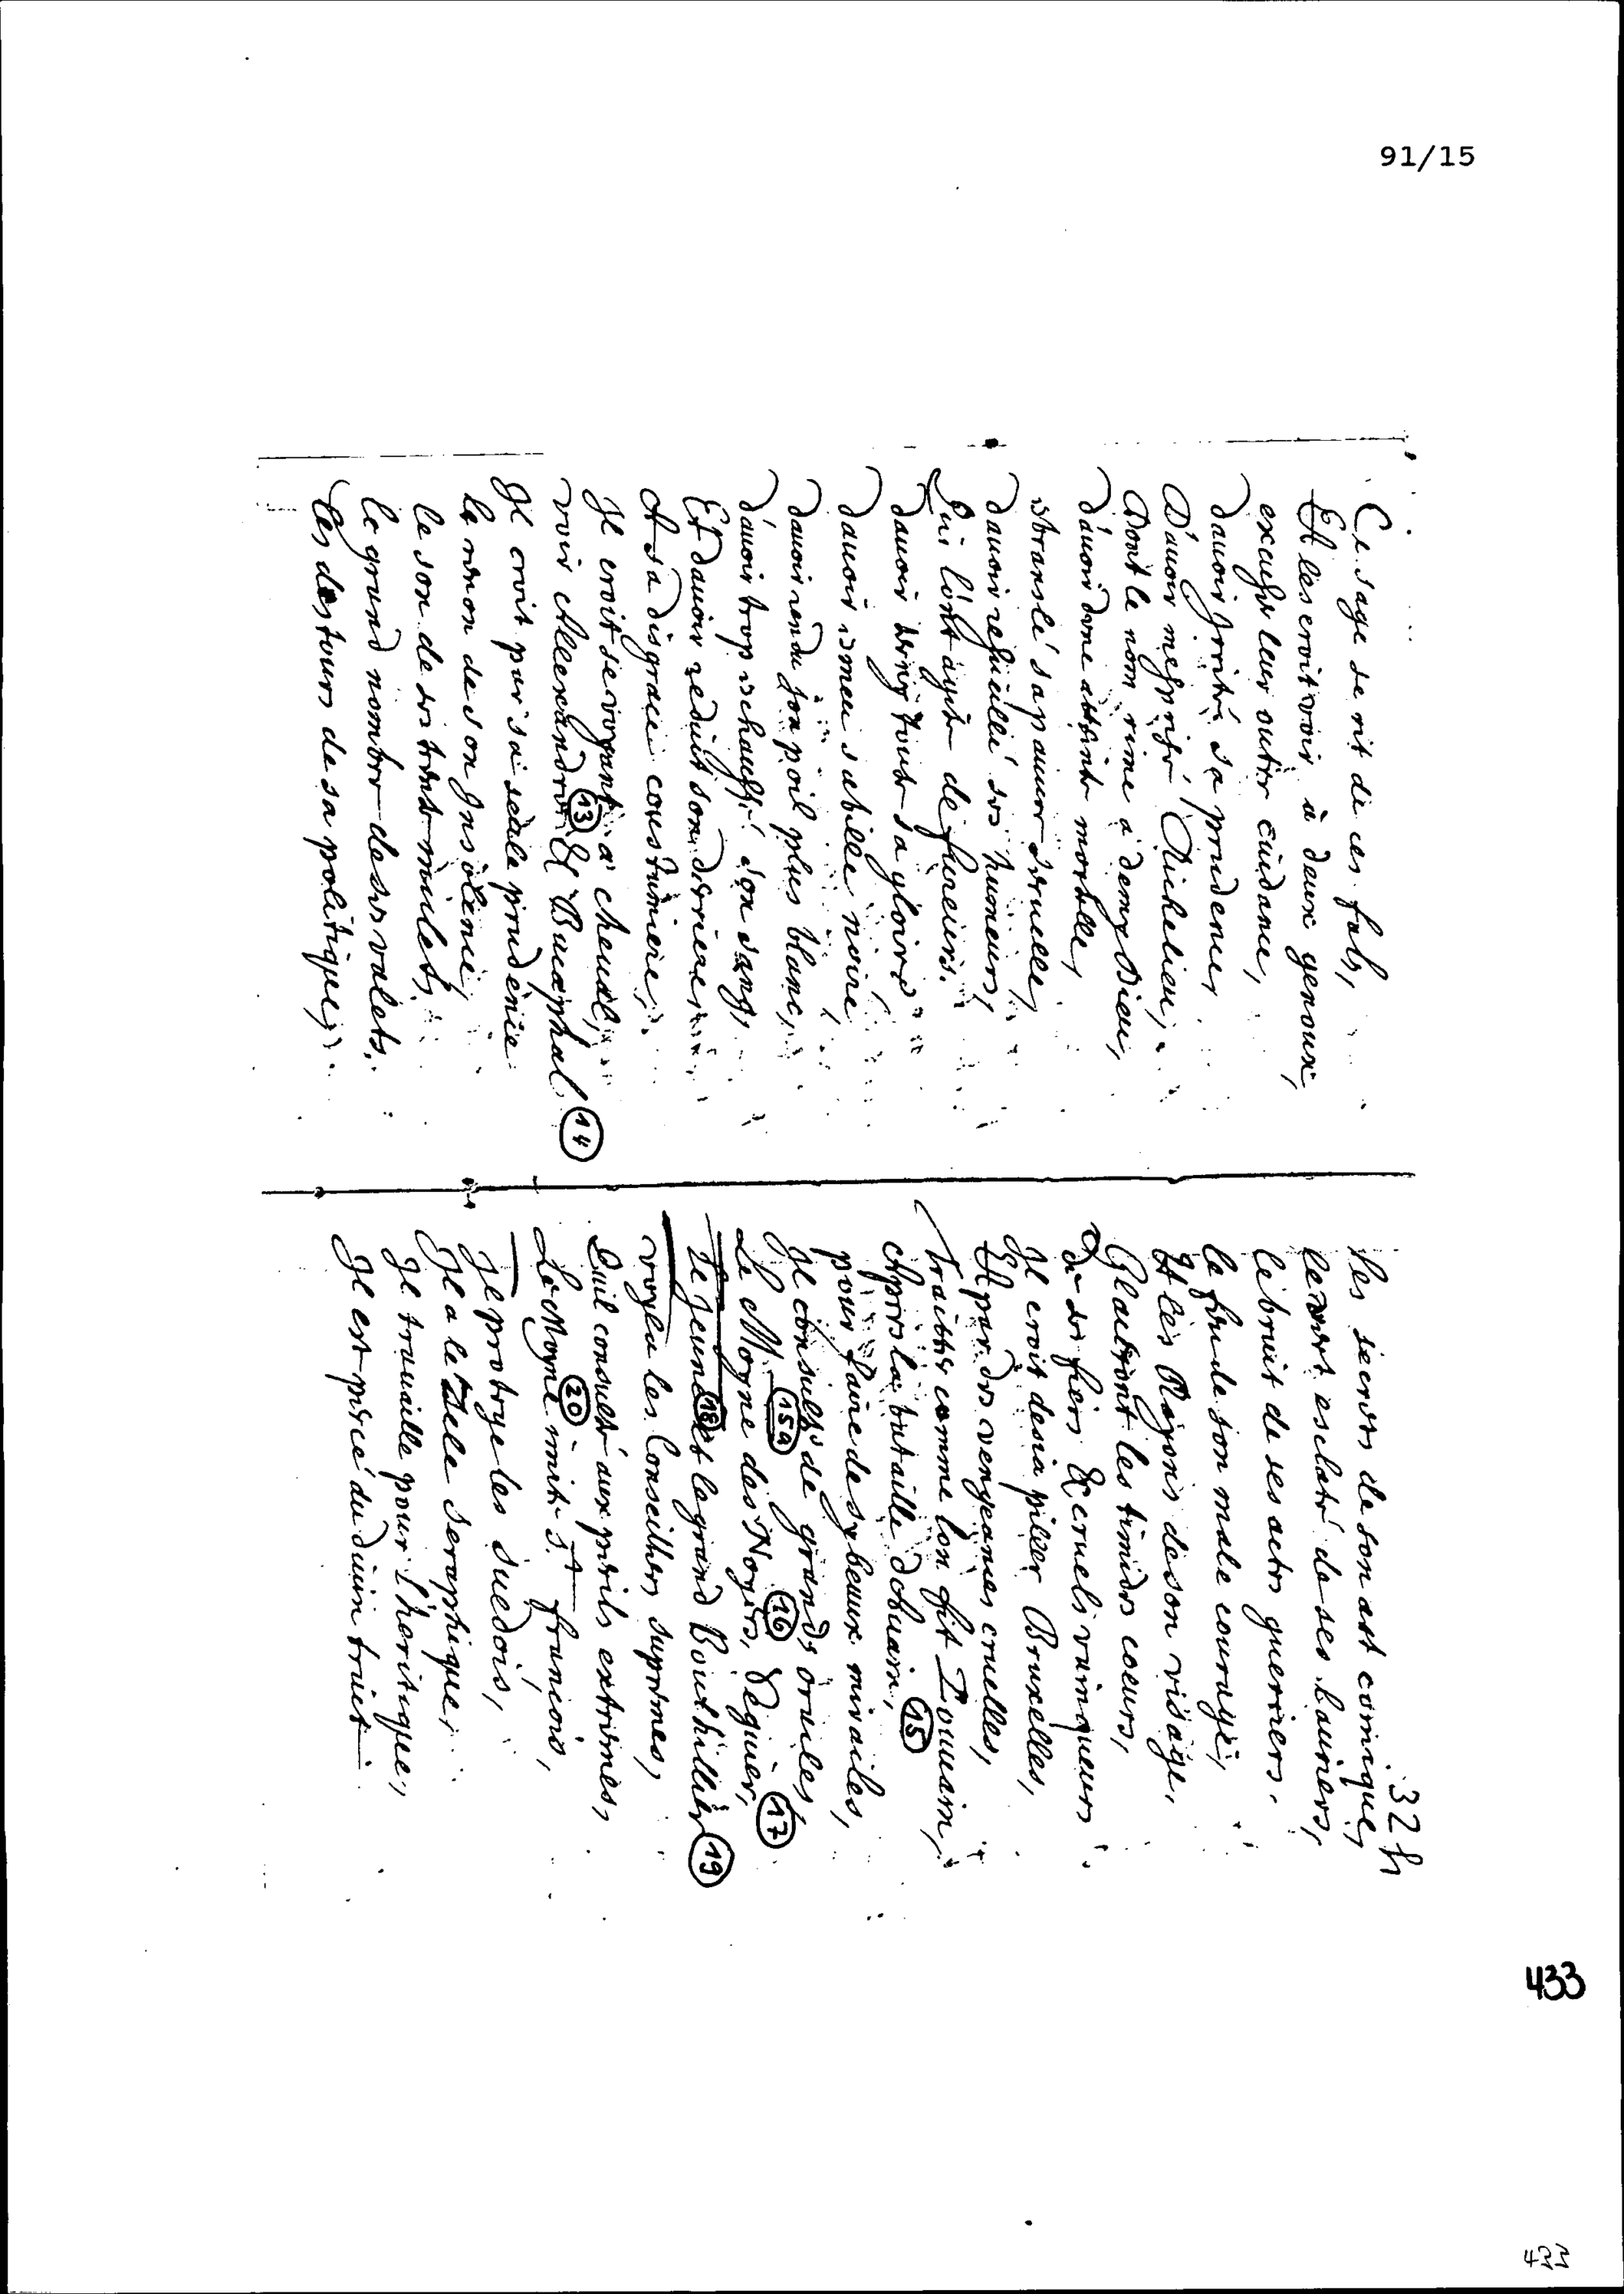 91/15
Ce sage se rit de ces fols,
Et les croit voir à deux genoux,
excuser leur outre cuidance,
davoir jrrité sa prudence,
D'avoir mesprisé Richelieu,
Dont le nom rime a demy Dieu,
d'avoir dune attinte mortelle,
esbranslé sa pauure ceruelle,
davoir resueillé ses humeurs,
Qui lont agité de fureurs.
davoir terny toute sa gloire
davoir esmeu sa bille noire,
davoir rendu son poil plus blanc,
d'avoir trop eschauffé son sang,
Et davoir reduit son derriere,
A sa disgrace coustumiere,
Jl croit se voyant a cheual,
voir Allexandre (13) & Bucephal (14)
Jl croit par sa seule prudence
le renon de son Jnsolence,
le son de ses trente mulets,
le grand nombre de ses valets.
Les destours de sa politique,
32 h
Les secrets de son art comique,
le vert esclat de ses lauriers,
le bruit de ses actes guerriers.
le feu de son male courage,
Et les Rayons de son visage,
Glaceront les timides coeurs,
De ses fiers & cruels vainqueurs
Jl croit desia piller Bruxelles,
Et par des vengeances cruelles,
Traitter comme lon fit Louuain,
Apres la bataille dobuain, (15)
pour faire de sy beaux miracles,
Jl consulte de grands oracles,
Le Moyne (15a) des Noyers, (16) Seguier, (17)
Le jeune (18) et le grand Bouthillier (19)
voyla les Conseillers supremes,
Quil consulte aux perils extremes,
Le Moyne (20) imite St françois,
Jl protege les suedois,
Jl a le Zele seraphique,
Jl trauaille pour l'heritique,
Jl est percé du diuin traict
433
422